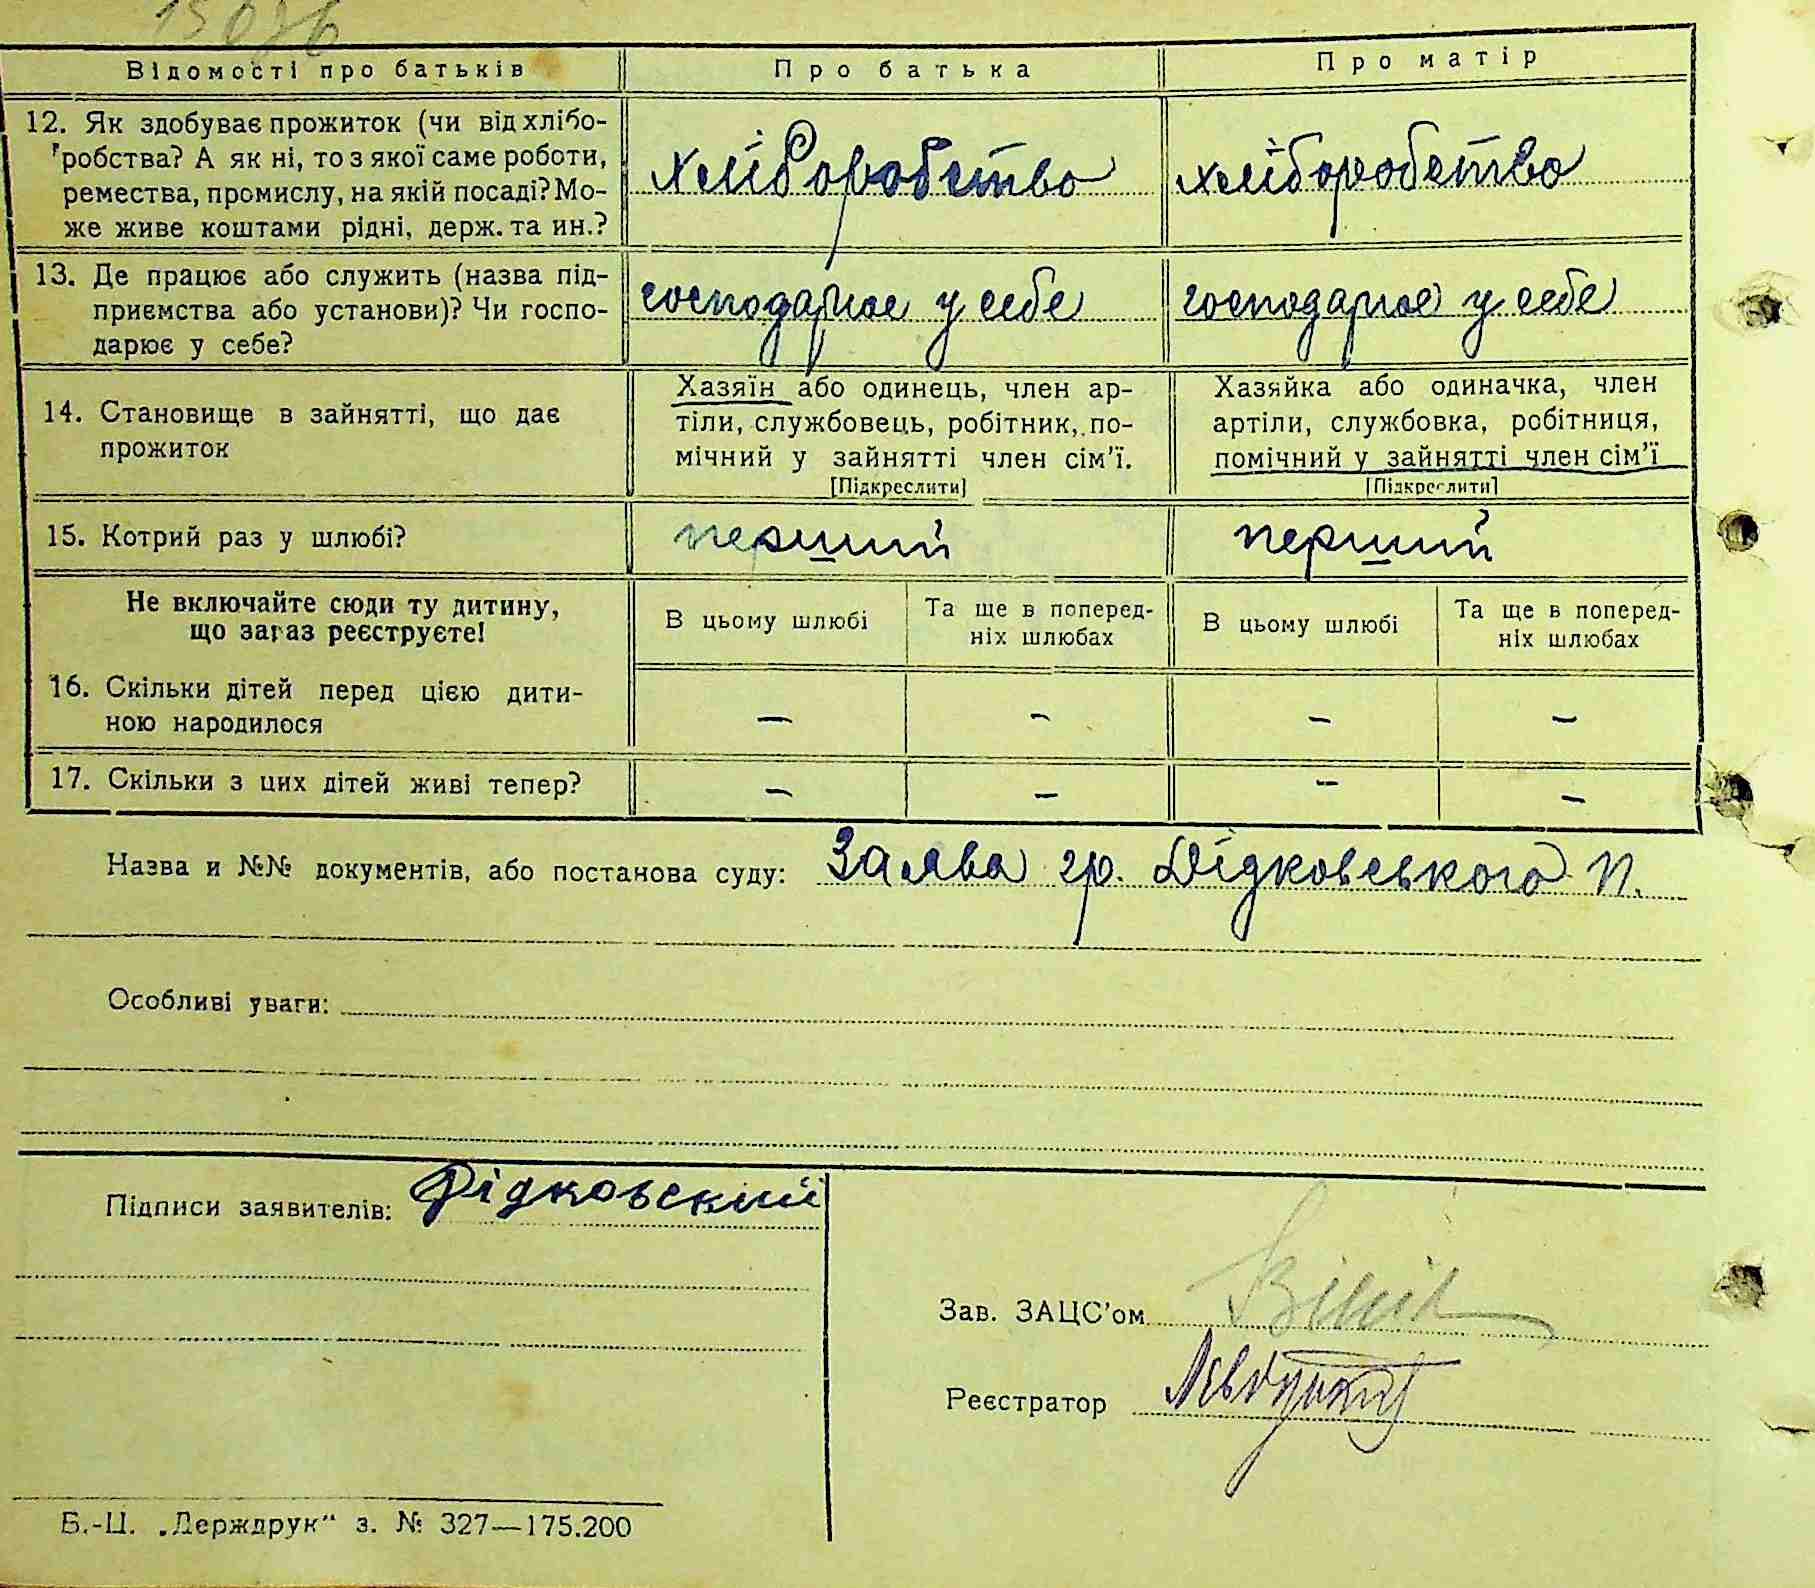 Відомості про батьків Про батька Про матір
12. Як здобуває прожиток (чи від хлібо-
робства? А як ні, то з якої саме роботи,
ремества, промислу, на якій посаді? Мо-
же живе коштами рідні, держ. та ин.?
хліборобство хліборобство
13. Де працює або служить (назва під-
приємства або установи)? Чи госпо-
дарює у себе?
господарює у себе господарює у себе
14. Становище в зайнятті, що дає
прожиток
Хазяїн або одинець, член ар-
тіли, службовець, робітник, по-
мічний у зайнятті член сім’ї.
[Підкреслити]
Хазяйка або одиначка, член
артіли, службовка, робітниця,
помічний у зайнятті член сім’ї
[Підкреслити]
15. Котрий раз у шлюбі? перший перший
Не включайте сюди ту дитину,
що зараз реєструєте!
В цьому шлюбі
Та ще в поперед-
ніх шлюбах
В цьому шлюбі
Та ще в поперед-
ніх шлюбах
16. Скільки дітей перед цією дити-
ною народилося
— — — —
17. Скільки з цих дітей живі тепер? — — — —
Назва и №№ документів, або постанова суду: Заява гр. Дідковського П.
Особливі уваги:
Підписи заявителів: Дідковский
Зав. ЗАЦС’ом
Реєстратор
Б.-Ц. „Держдрук“ з. № 327—175.200